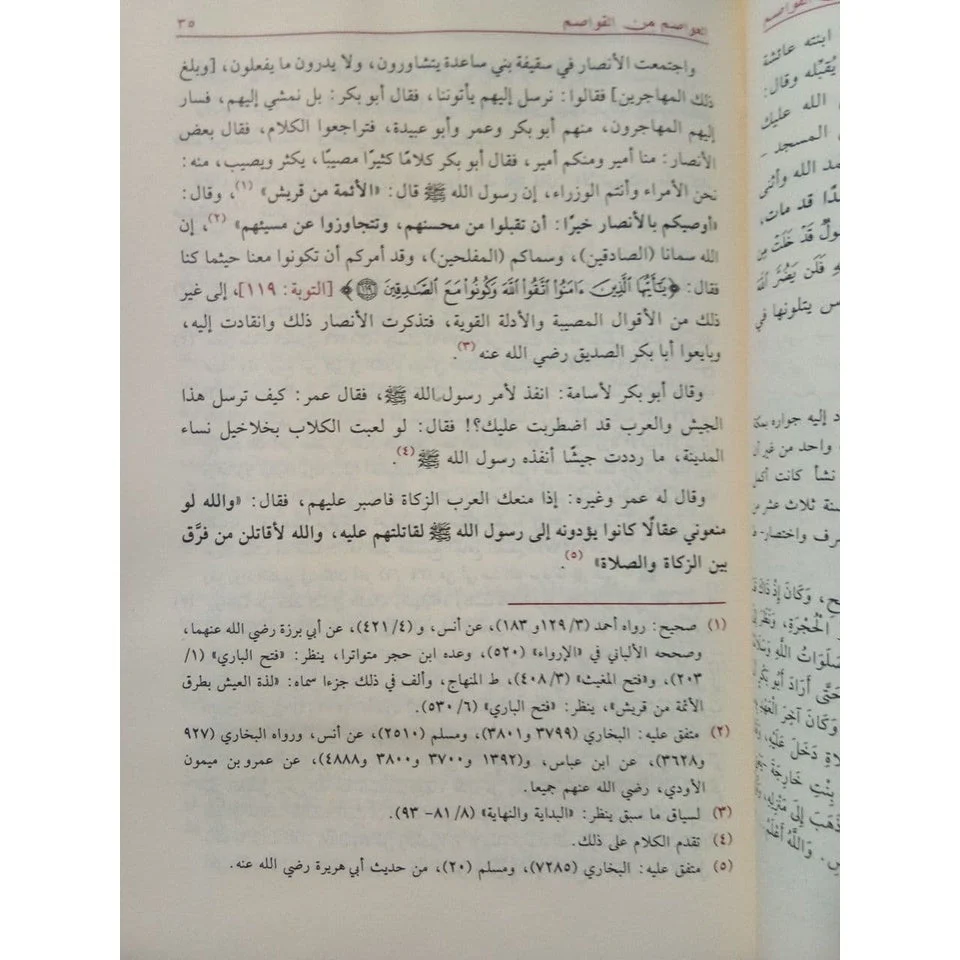 العواصم من القواصم
٣٥
واجتمعت الأنصار في سقيفة بني ساعدة يتشاورون، ولا يدرون ما يفعلون، [وبلغ
ذلك المهاجرين] فقالوا: نرسل إليهم يأتوننا، فقال أبو بكر: بل نمشي إليهم، فسار
إليهم المهاجرون، منهم أبو بكر وعمر وأبو عبيدة، فتراجعوا الكلام، فقال بعض
الأنصار: منا أمير ومنكم أمير، فقال أبو بكر كلامًا كثيرًا مصيبًا، يكثر ويصيب، منه:
نحن الأمراء وأنتم الوزراء، إن رسول الله ﷺ قال: «الأئمة من قريش» (١)، وقال:
«أوصيكم بالأنصار خيرًا: أن تقبلوا من محسنهم، وتتجاوزوا عن مسيئهم» (٢)، إن
الله سمانا (الصادقين)، وسماكم (المفلحين)، وقد أمركم أن تكونوا معنا حيثما كنا
فقال: ﴿يَٰٓأَيُّهَا ٱلَّذِينَ ءَامَنُوا۟ ٱتَّقُوا۟ ٱللَّهَ وَكُونُوا۟ مَعَ ٱلصَّٰدِقِينَ ۝١١٩﴾ [التوبة: ١١٩]، إلى غير
ذلك من الأقوال المصيبة والأدلة القوية، فتذكرت الأنصار ذلك وانقادت إليه،
وبايعوا أبا بكر الصديق رضي الله عنه (٣).
وقال أبو بكر لأسامة: انفذ لأمر رسول الله ﷺ، فقال عمر: كيف ترسل هذا
الجيش والعرب قد اضطربت عليك؟! فقال: لو لعبت الكلاب بخلاخيل نساء
المدينة، ما رددت جيشًا أنفذه رسول الله ﷺ (٤).
وقال له عمر وغيره: إذا منعك العرب الزكاة فاصبر عليهم، فقال: «والله لو
منعوني عقالًا كانوا يؤدونه إلى رسول الله ﷺ لقاتلتهم عليه، والله لأقاتلن من فرَّق
بين الزكاة والصلاة» (٥).
(١) صحيح: رواه أحمد (٣/ ١٢٩ و١٨٣)، عن أنس، و (٤/ ٤٢١)، عن أبي برزة رضي الله عنهما،
وصححه الألباني في «الإرواء» (٥٢٠)، وعده ابن حجر متواترا، ينظر: «فتح الباري» (١/
٢٠٣)، و«فتح المغيث» (٣/ ٤٠٨)، ط المنهاج، وألف في ذلك جزءا سماه: «لذة العيش بطرق
الأئمة من قريش»، ينظر: «فتح الباري» (٦/ ٥٣٠).
(٢) متفق عليه: البخاري (٣٧٩٩ و٣٨٠١)، ومسلم (٢٥١٠)، عن أنس، ورواه البخاري (٩٢٧
و٣٦٢٨)، عن ابن عباس، و(١٣٩٢ و٣٧٠٠ و٣٨٠٠ و٤٨٨٨)، عن عمرو بن ميمون
الأودي، رضي الله عنهم جميعا.
(٣) لسياق ما سبق ينظر: «البداية والنهاية» (٨/ ٨١– ٩٣).
(٤) تقدم الكلام على ذلك.
(٥) متفق عليه: البخاري (٧٢٨٥)، ومسلم (٢٠)، من حديث أبي هريرة رضي الله عنه.
القواصم
ابنته عائشة
يُقبِّله وقال:
الله عليك
المسجد -
مد الله وأثنى
قد مات،
قَدْ خَلَتْ مِن
فَلَن يَضُرَّ اللَّهَ
س يتلونها في
د إليه جواره بمكة
واحد من غير أن
نشأ كانت أكمل
سنة ثلاث عشر من
رف واختصار-
حِ، وَكَانَ إِذْ ذَاكَ
الْحُجْرَةِ، وَنَظَرَ
صَلَوَاتُ اللَّهِ
حَتَّى أَرَادَ أَبُو بَكْرٍ
وَكَانَ آخِرَ الْعَهْدِ
دَخَلَ عَلَيْهِ،
بِنْتِ خَارِجَةَ
ذَهَبَ إِلَى مَنْزِلِهِ،
وَاللَّهُ أَعْلَمُ